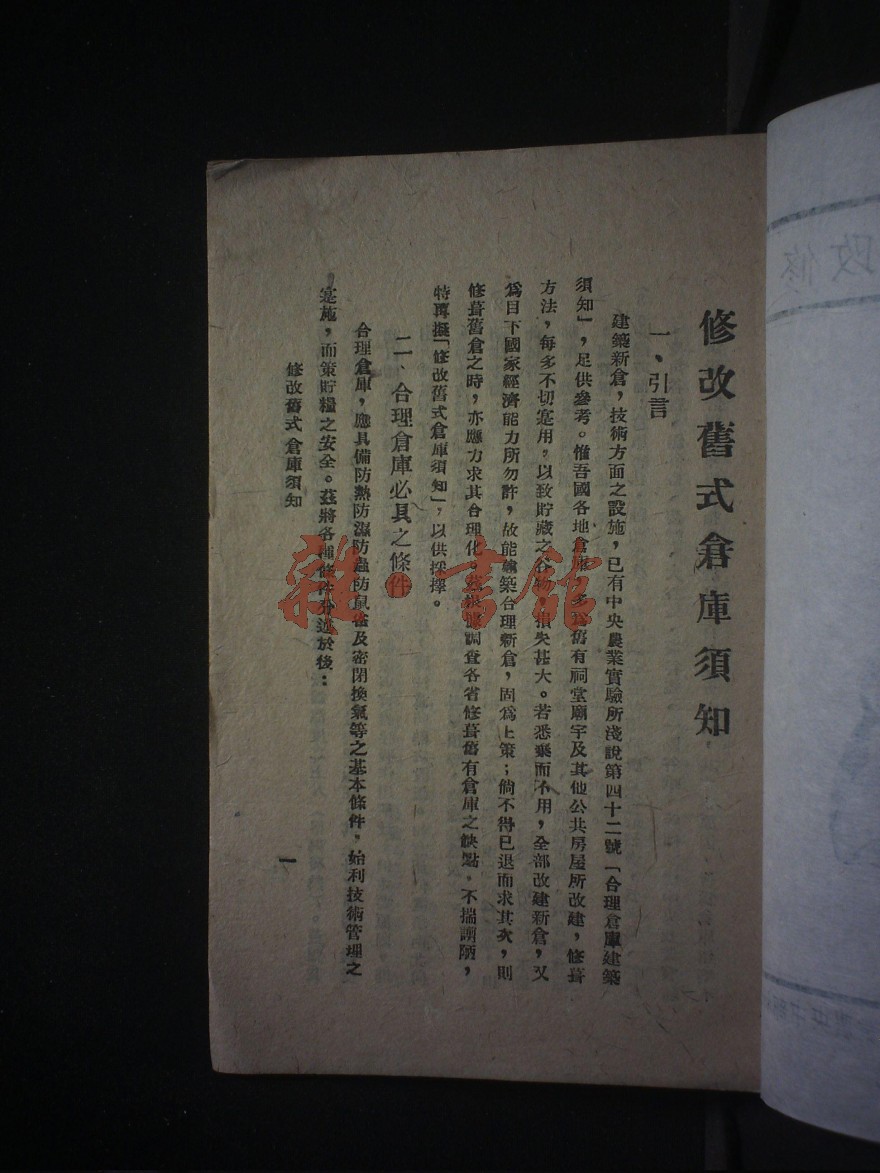 修改舊式倉庫須知
一、引言
建築新倉，技術方面之設施，已有中央農業實驗所淺說第四十二號「合理倉庫建築
須知」，足供參考。惟吾國各地倉庫，多為舊有祠堂廟宇及其他公共房屋所改建，修葺
方法，每多不切寔用，以致貯藏之谷物，損失甚大。若悉棄而不用，全部改建新倉，又
為目下國家經濟能力所勿許，故能建築合理新倉，固為上策；倘不得已退而求其次，則
修葺舊倉之時，亦應力求其合理化。茲根據調查各省修葺舊有倉庫之缺點，不揣譾陋，
特再擬「修改舊式倉庫須知」，以供採擇。
二、合理倉庫必具之條件
合理倉庫，應具備防熱防濕防蟲防鼠雀及密閉換氣等之基本條件，始利技術管理之
寔施，而策貯糧之安全。茲將各種條件分述於後：
修改舊式倉庫須知
一
雜·書館
改修